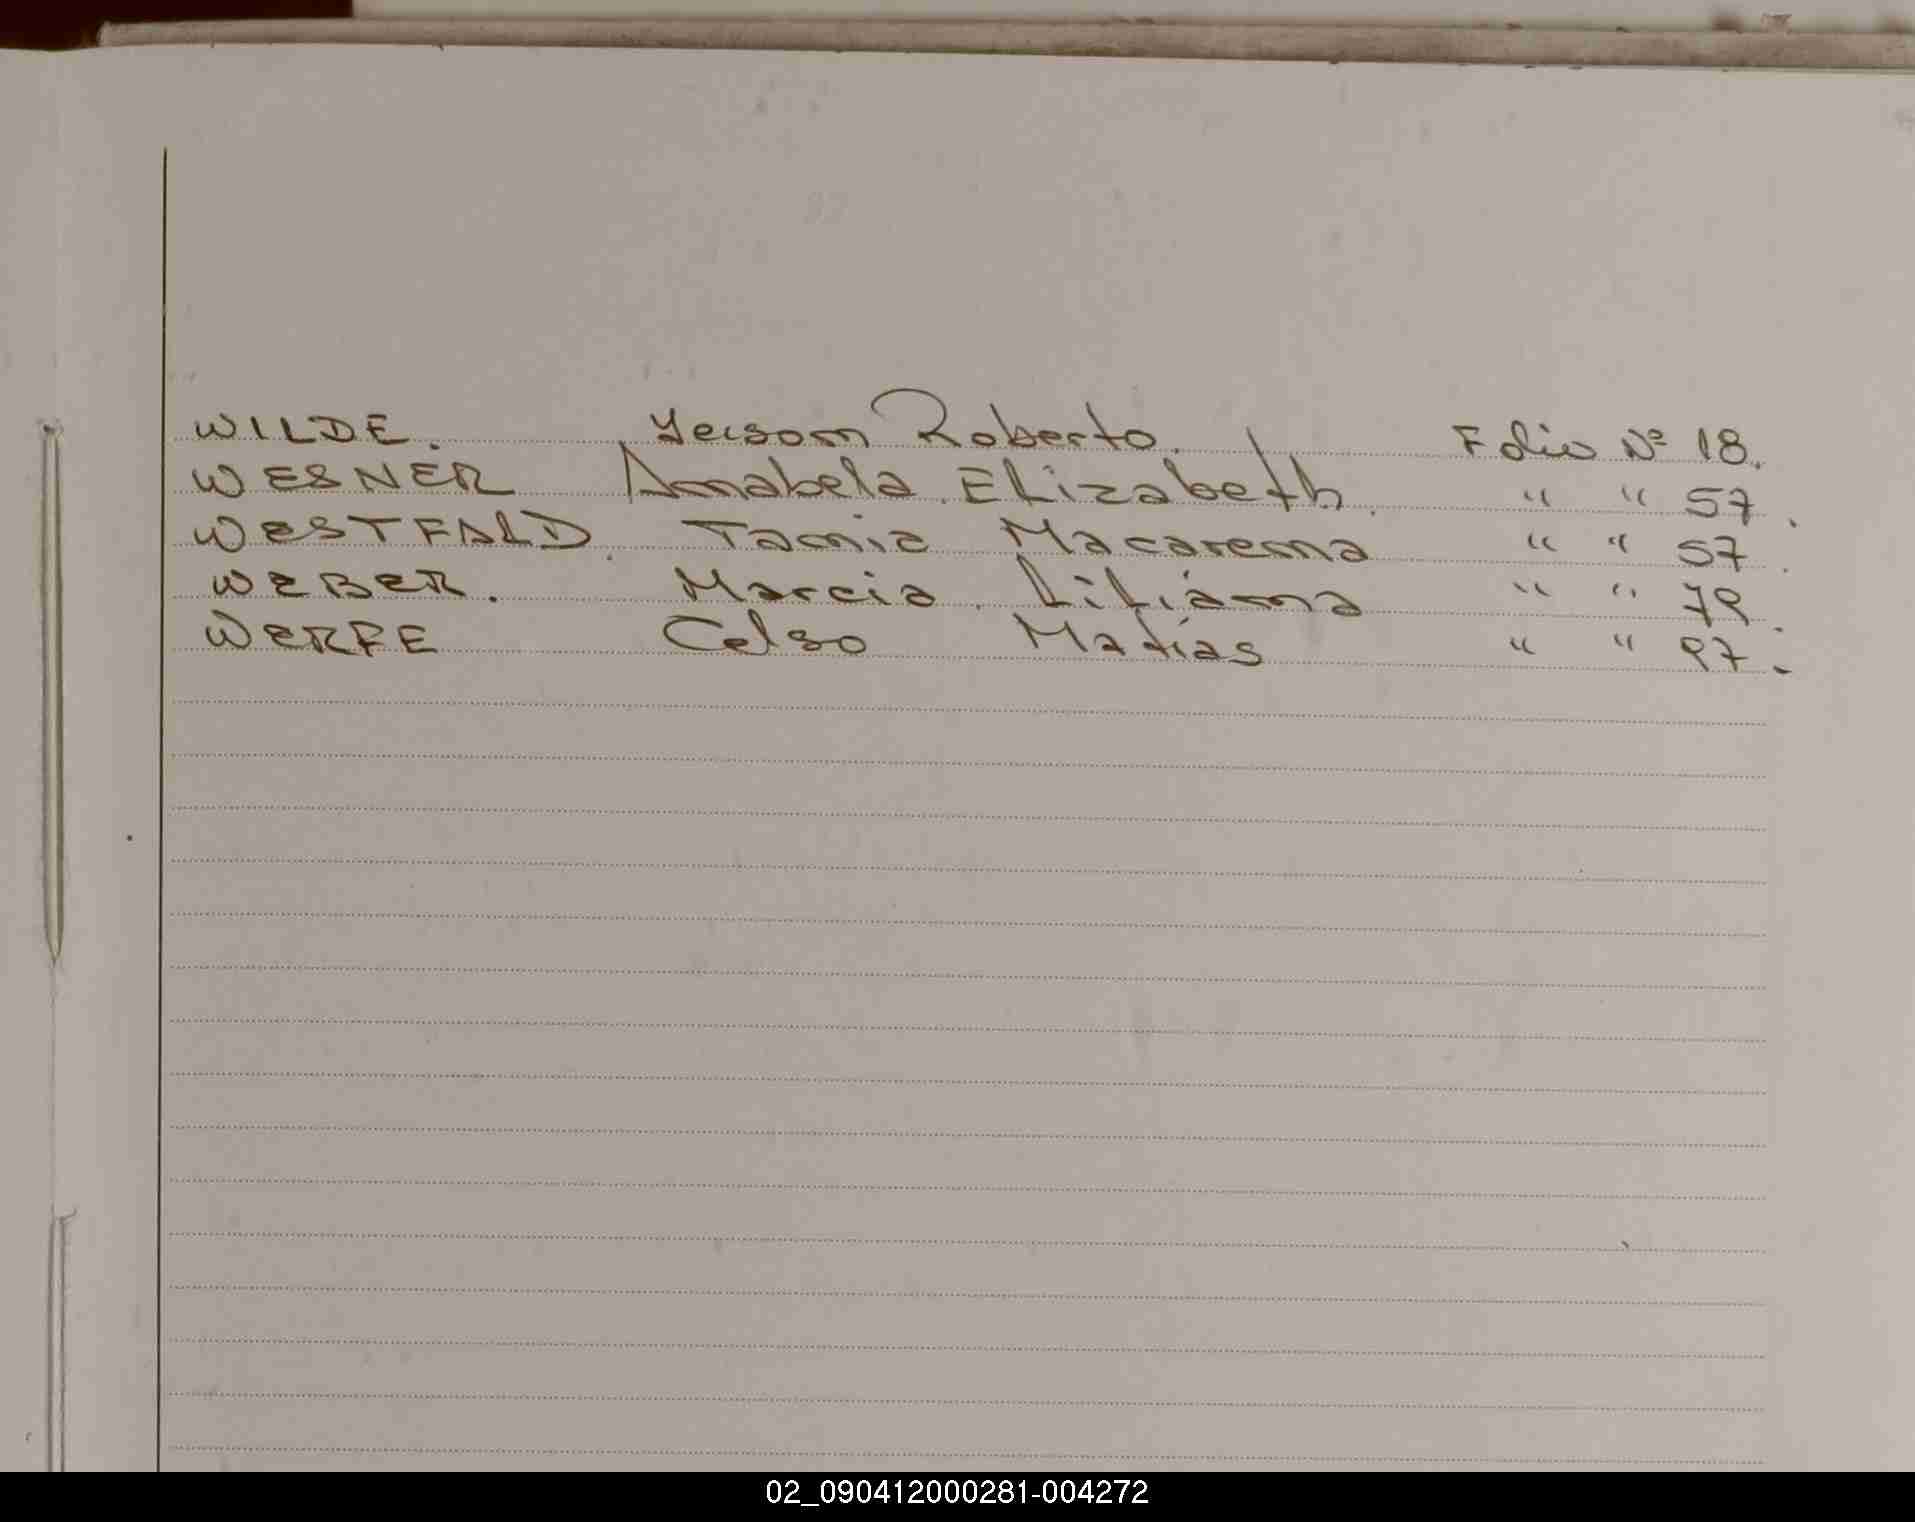 WILDE. Yeison Roberto. Folio Nº 18.
WESNER Annabela Elizabeth. " " 57.
WESTFALD. Tania Macarena " " 57.
WEBER. Marcia Liliana " " 79.
WERFE Celso Matías " " 97.
02_090412000281-004272